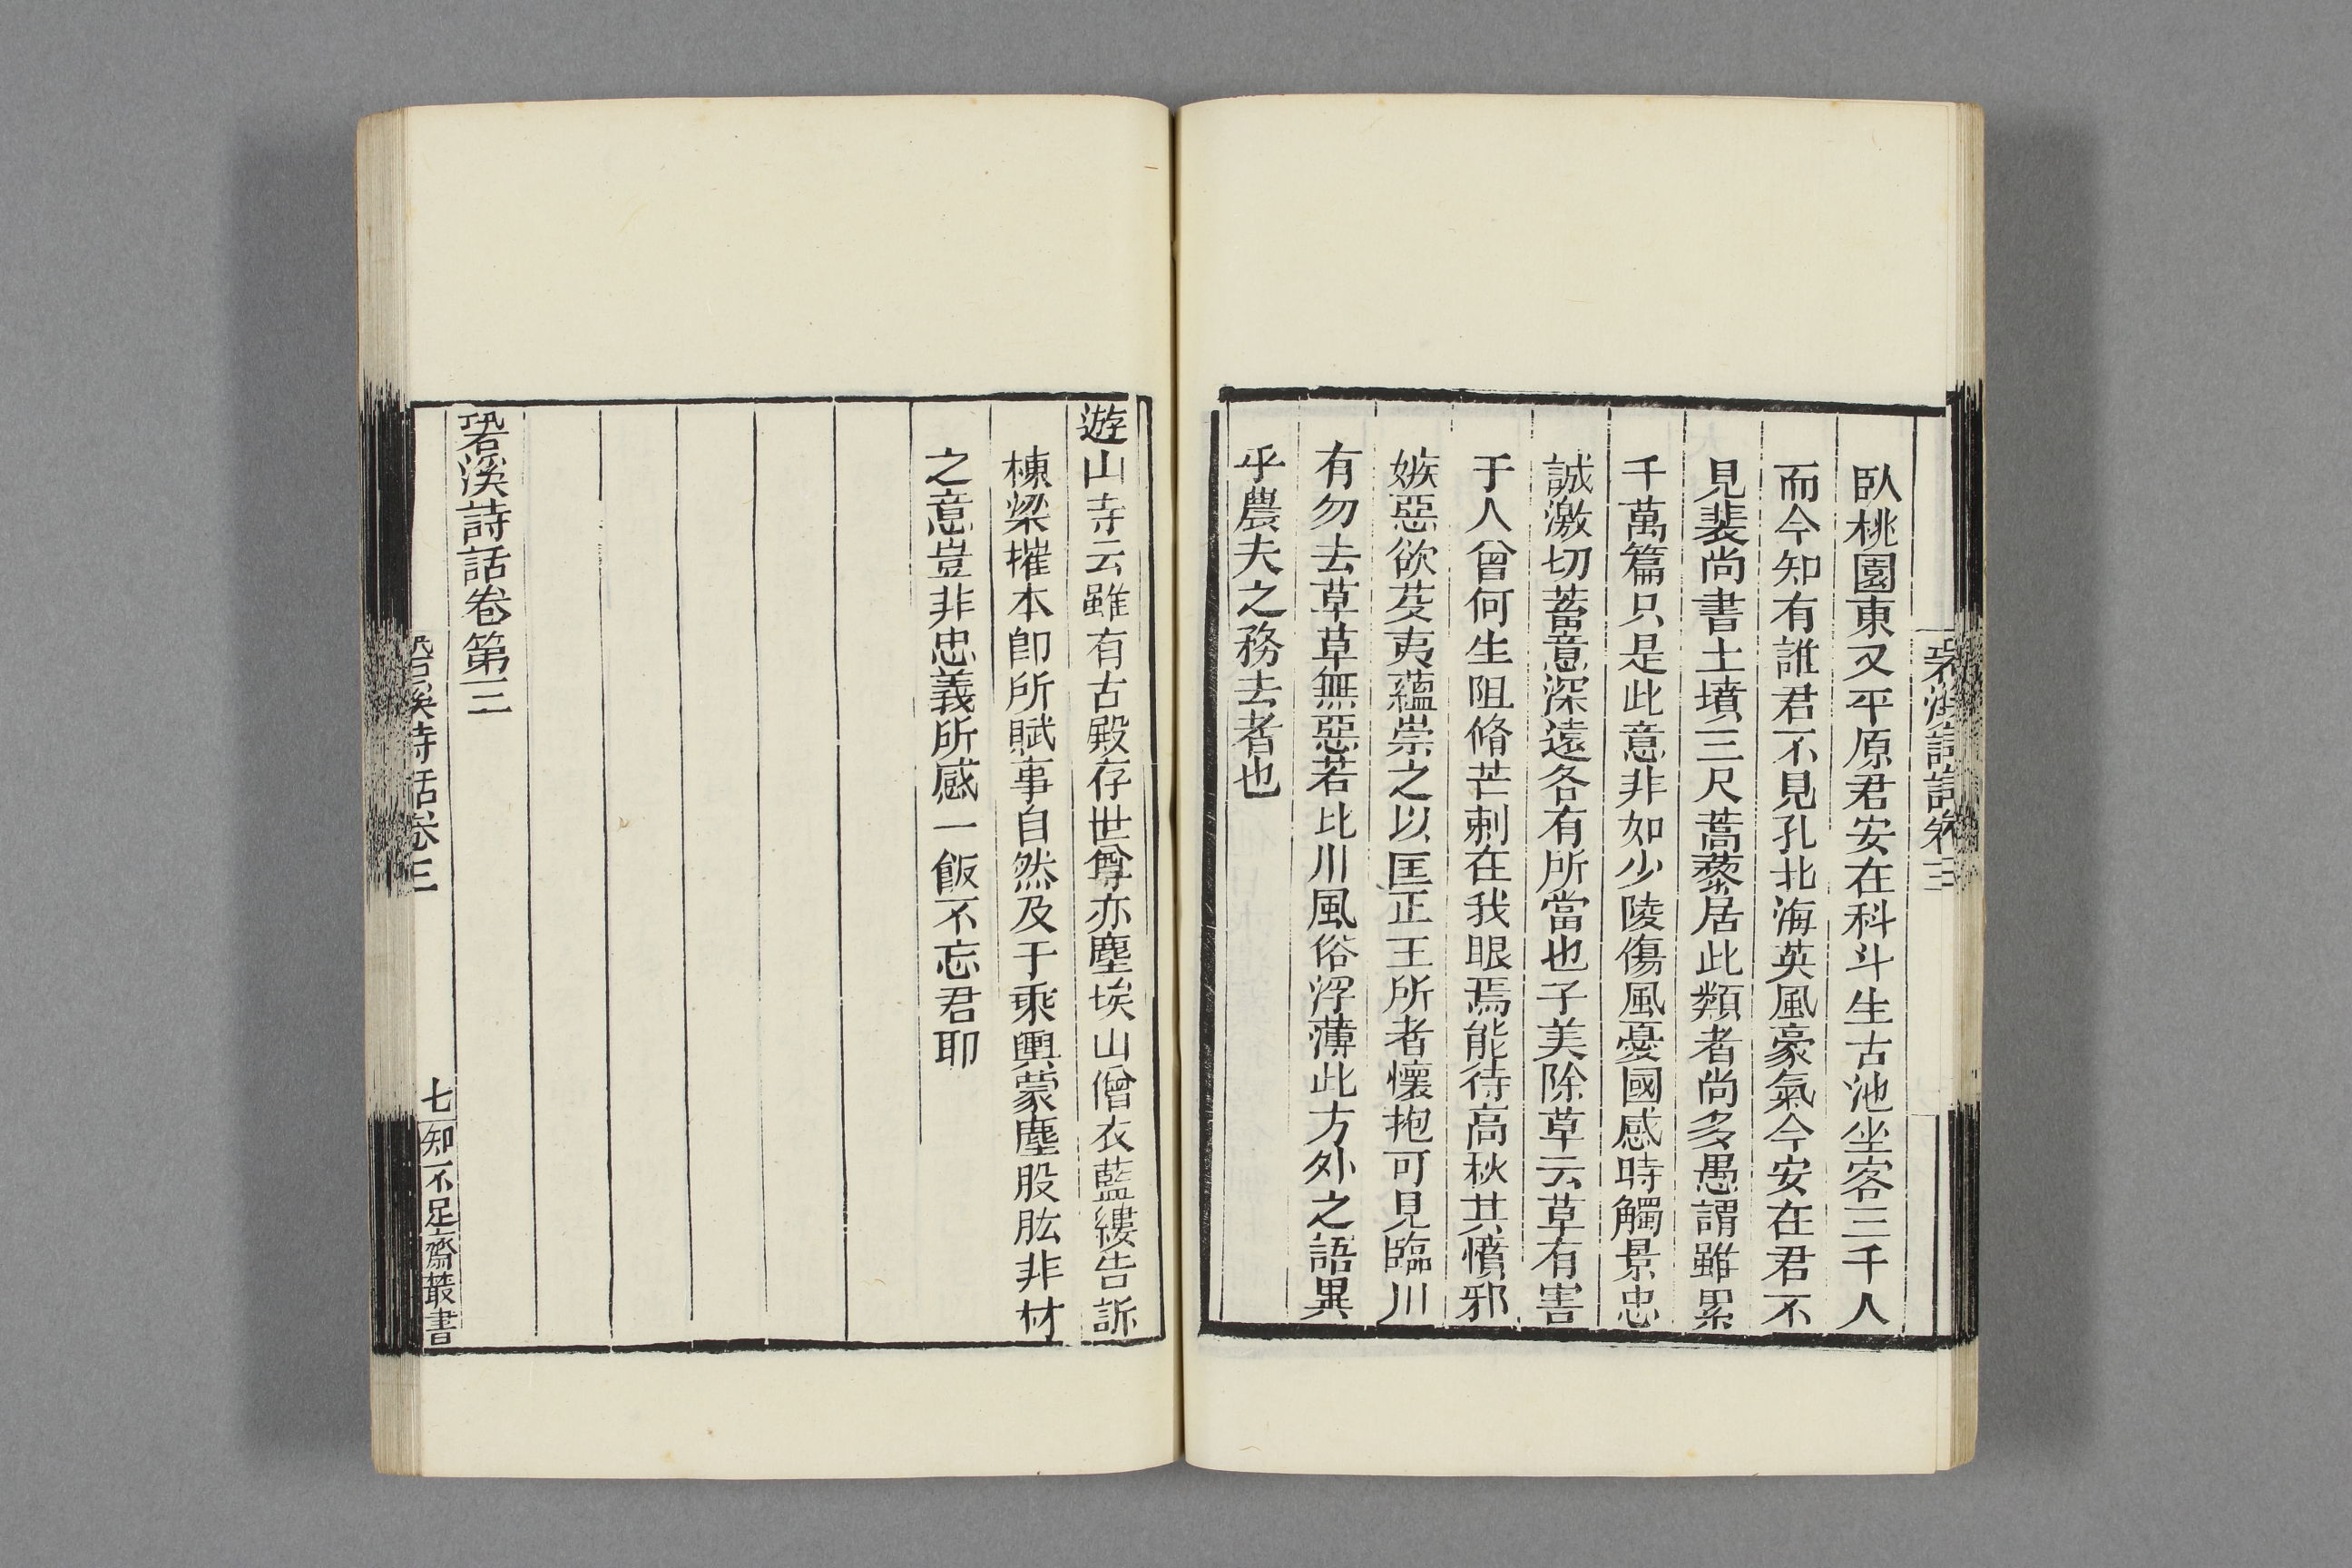 䂬溪詩話卷三
臥桃園東又平原君安在科斗生古池坐客三千人
而今知有誰君不見孔北海英風豪氣今安在君不
見裴尚書土墳三尺蒿藜居此類者尚多愚謂雖累
千萬篇只是此意非如少陵傷風憂國感時觸景忠
誠激切蓄意深遠各有所當也子美除草云草有害
于人曾何生阻脩芒刺在我眼焉能待高秋其憤邪
嫉惡欲芟夷蘊崇之以匡正王所者懷抱可見臨川
有勿去草草無惡若比川風俗浮薄此方外之語異
乎農夫之務去者也
遊山寺云雖有古殿存世尊亦塵埃山僧衣藍縷告訴
棟梁摧本卽所賦事自然及于乘輿蒙塵股肱非材
之意豈非忠義所感一飯不忘君耶
䂬溪詩話卷第三
䂬溪詩話卷三
七
知不足齋叢書